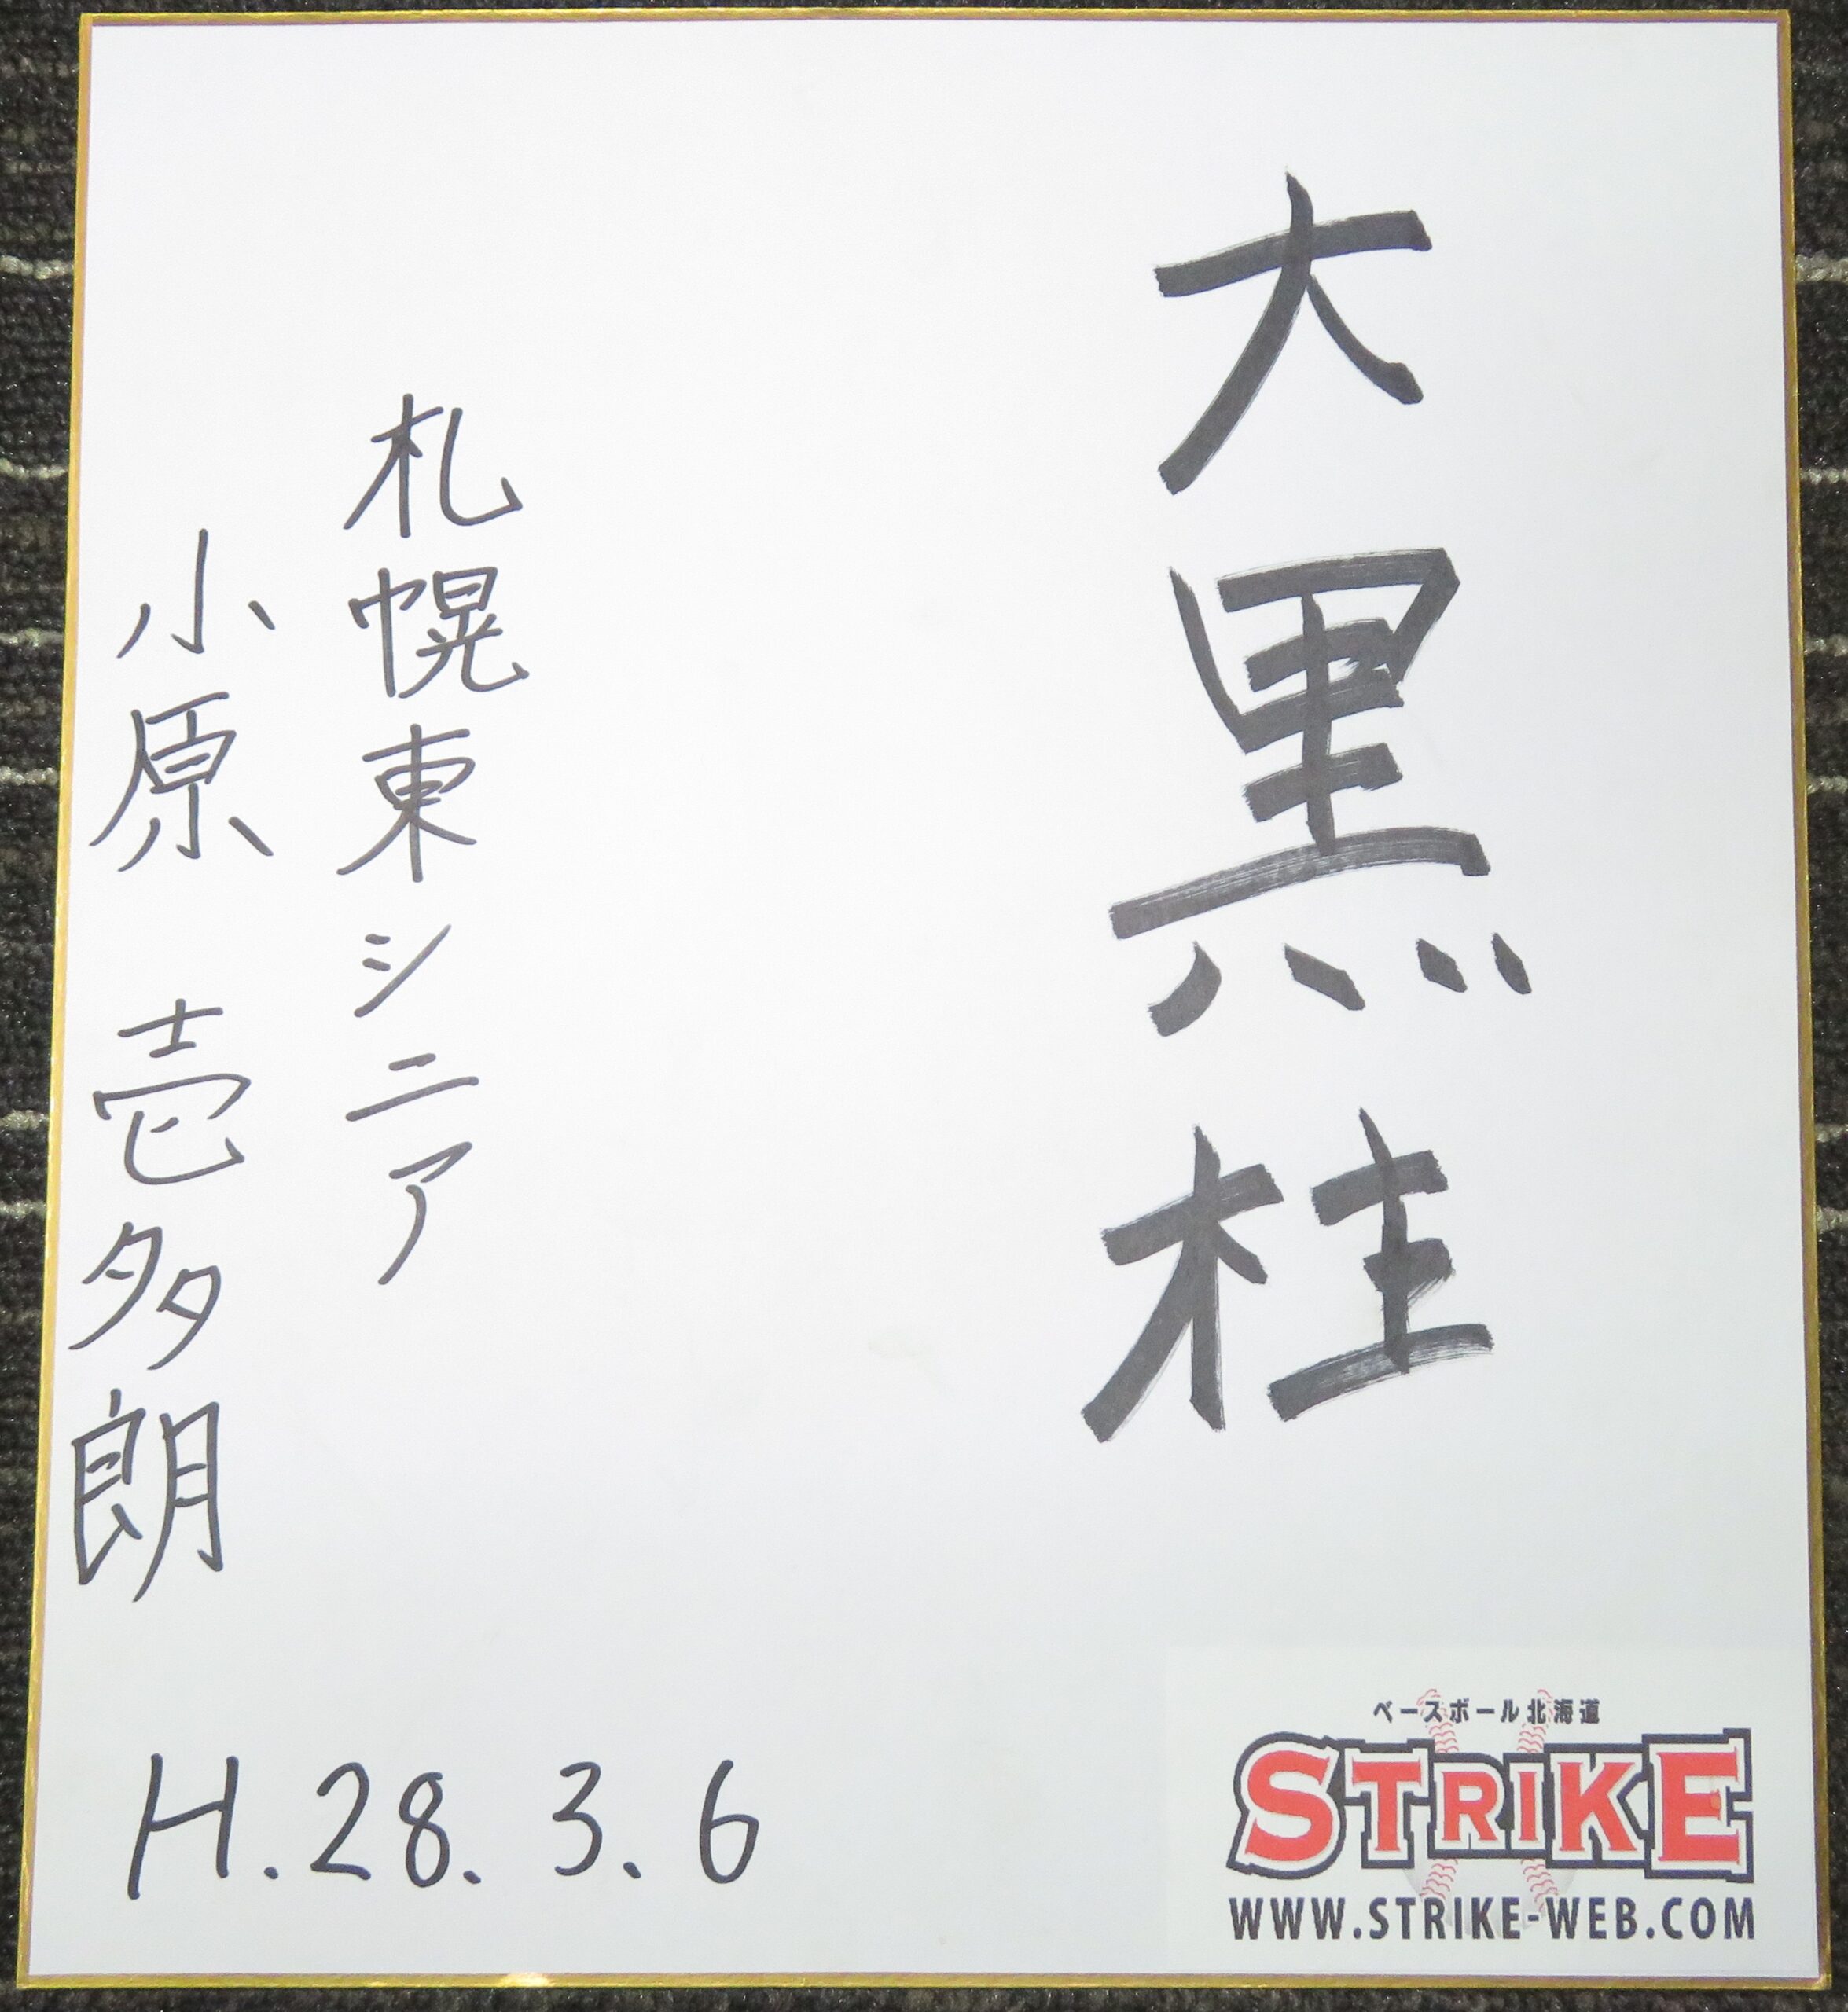 大黒柱
札幌東シニア
小原 壱多朗
H.28.3.6
ベースボール北海道
STRIKE
WWW.STRIKE-WEB.COM